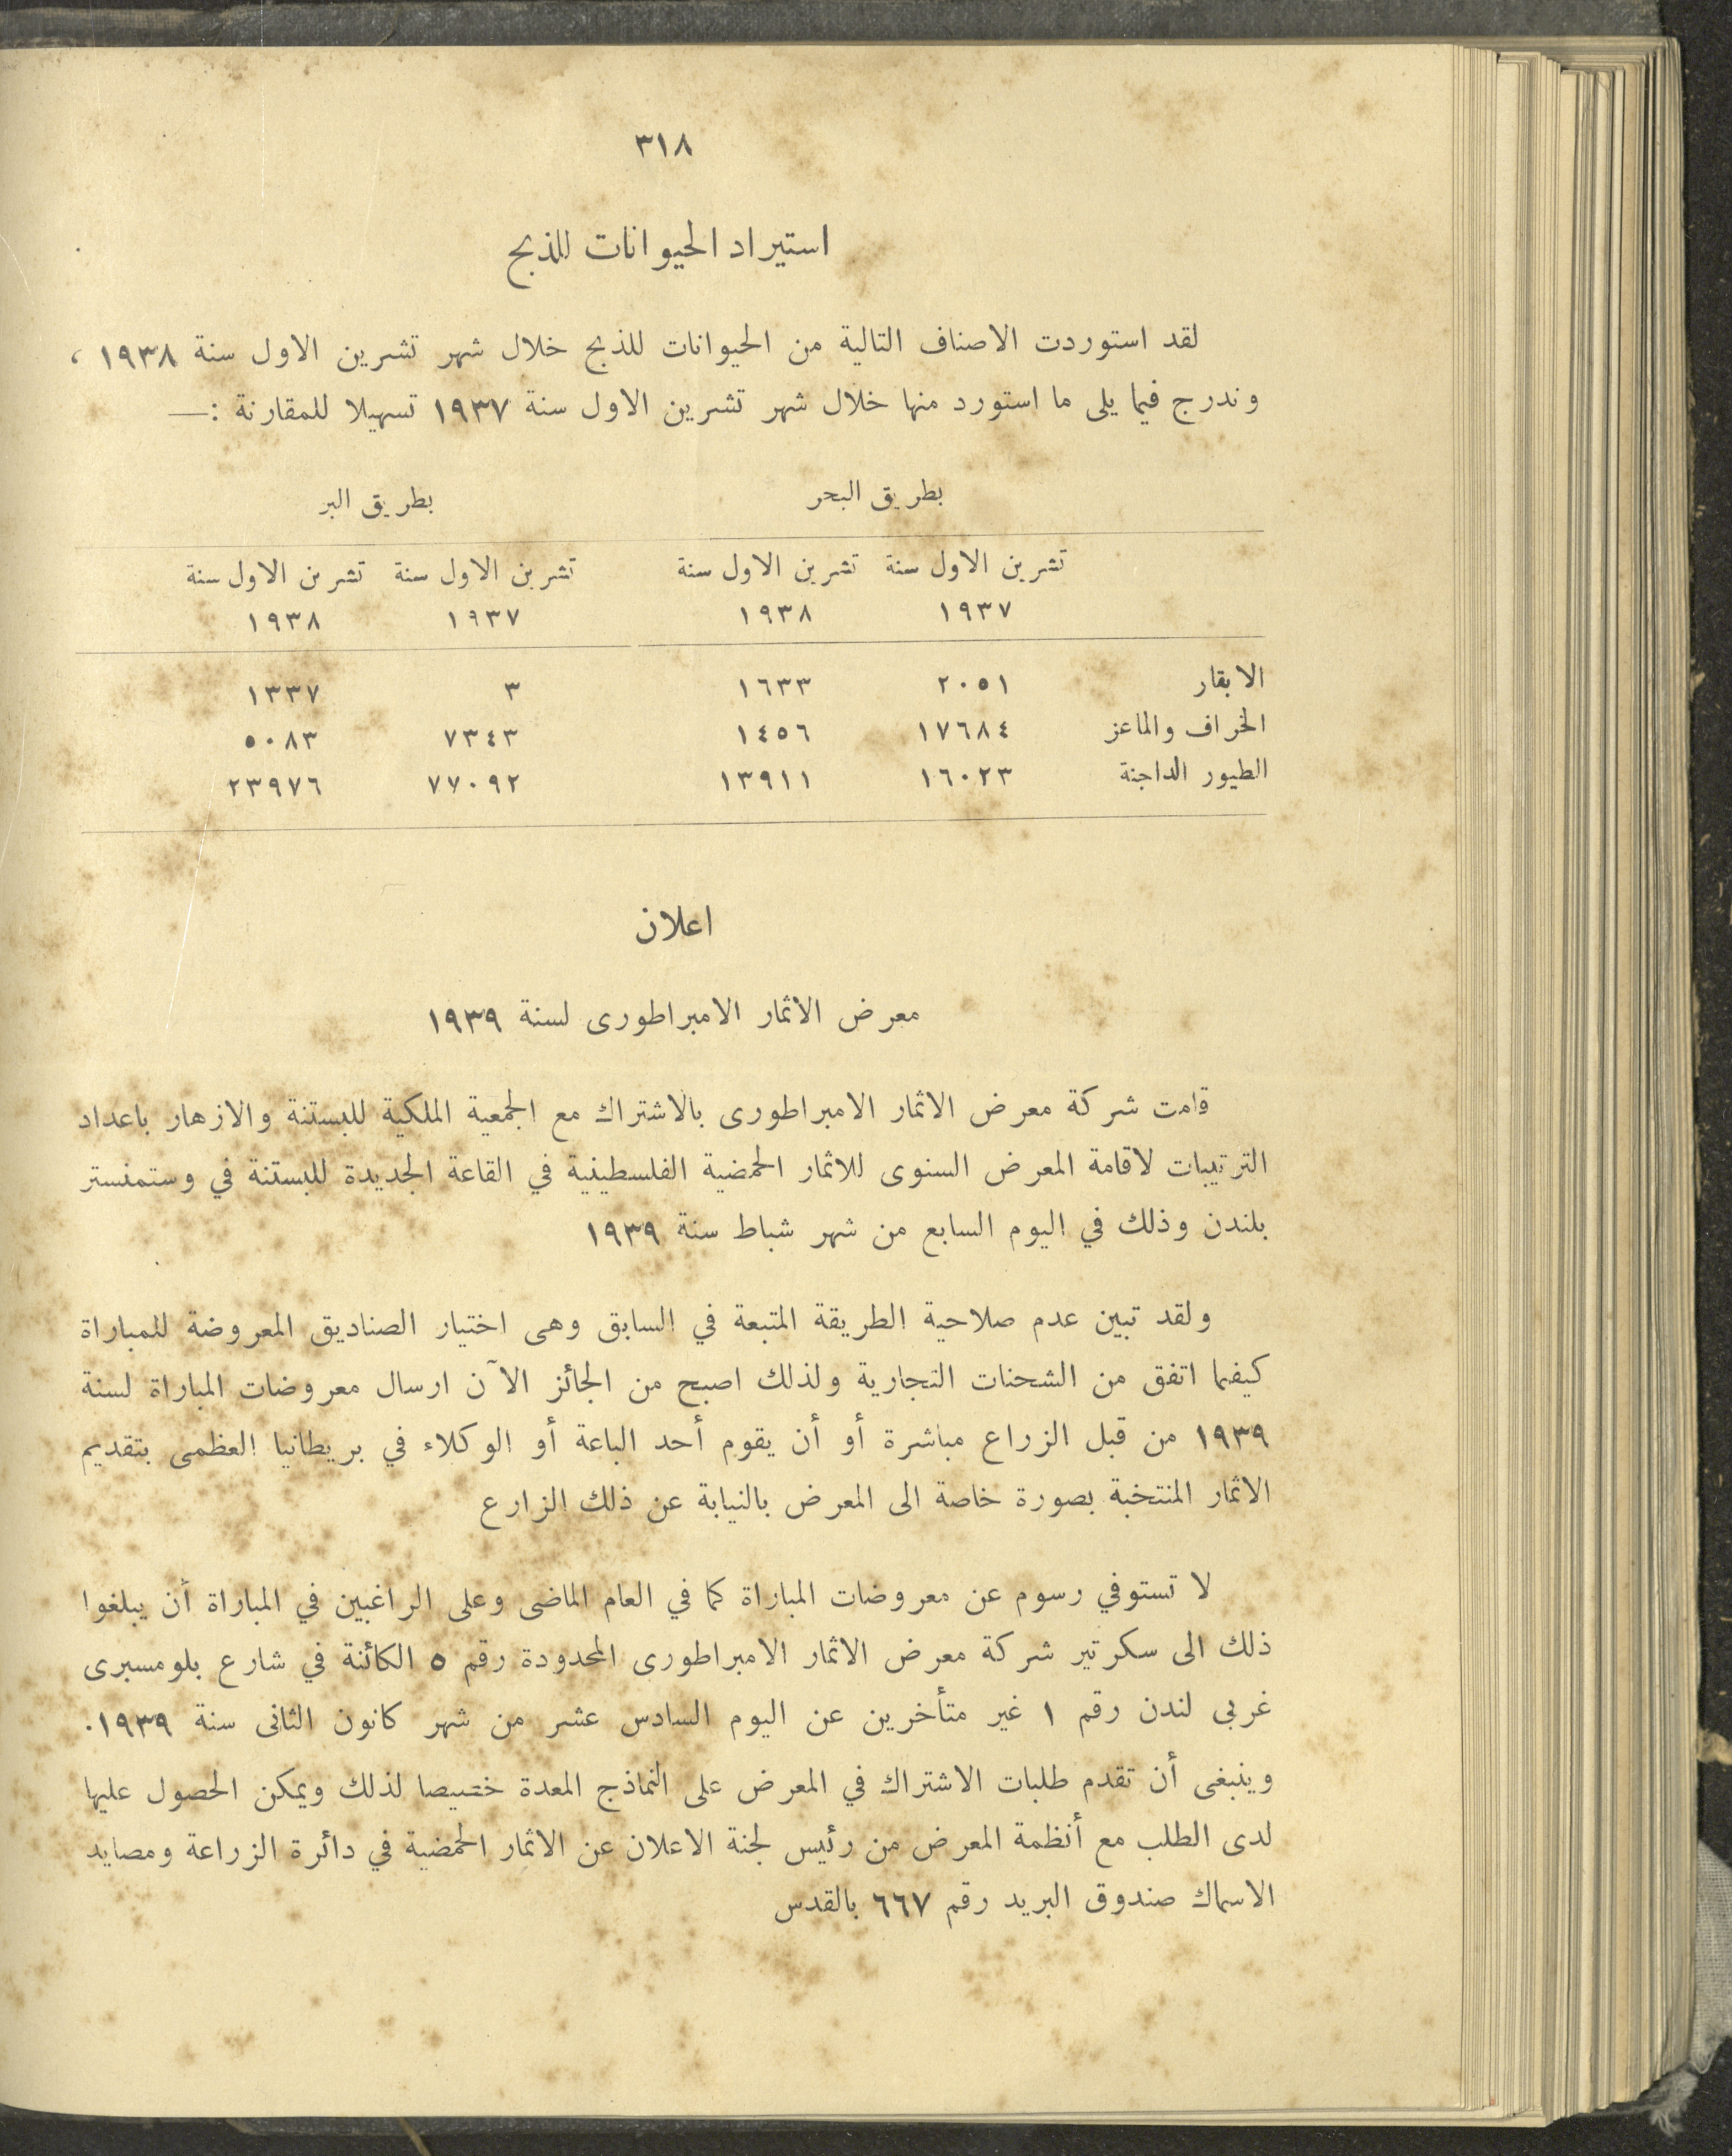 ٣١٨
استيراد الحيوانات للذبح
لقد استوردت الاصناف التالية من الحيوانات للذبح خلال شهر تشرين الاول سنة ١٩٣٨ ،
وندرج فيما يلى ما استورد منها خلال شهر تشرين الاول سنة ١٩٣٧ تسهيلا للمقارنة :—
بطريق البحر بطريق البر
تشرين الاول سنة تشرين الاول سنة تشرين الاول سنة تشرين الاول سنة
١٩٣٧ ١٩٣٨ ١٩٣٧ ١٩٣٨
الابقار ٢٠٥١ ١٦٣٣ ٣ ١٣٣٧
الخراف والماعز ١٧٦٨٤ ١٤٥٦ ٧٣٤٣ ٥٠٨٣
الطيور الداجنة ١٦٠٢٣ ١٣٩١١ ٧٧٠٩٢ ٢٣٩٧٦
اعلان
معرض الاثمار الامبراطورى لسنة ١٩٣٩
قامت شركة معرض الاثمار الامبراطورى بالاشتراك مع الجمعية الملكية للبستنة والازهار باعداد
الترتيبات لاقامة المعرض السنوى للاثمار الحمضية الفلسطينية في القاعة الجديدة للبستنة في وستمنستر
بلندن وذلك في اليوم السابع من شهر شباط سنة ١٩٣٩
ولقد تبين عدم صلاحية الطريقة المتبعة في السابق وهى اختيار الصناديق المعروضة للمباراة
كيفما اتفق من الشحنات التجارية ولذلك اصبح من الجائز الآن ارسال معروضات المباراة لسنة
١٩٣٩ من قبل الزراع مباشرة أو أن يقوم أحد الباعة أو الوكلاء في بريطانيا العظمى بتقديم
الاثمار المنتخبة بصورة خاصة الى المعرض بالنيابة عن ذلك الزارع
لا تستوفي رسوم عن معروضات المباراة كما في العام الماضى وعلى الراغبين في المباراة أن يبلغوا
ذلك الى سكرتير شركة معرض الاثمار الامبراطورى المحدودة رقم ٥ الكائنة في شارع بلومسبرى
غربى لندن رقم ١ غير متأخرين عن اليوم السادس عشر من شهر كانون الثانى سنة ١٩٣٩.
وينبغى أن تقدم طلبات الاشتراك في المعرض على النماذج المعدة خصيصا لذلك ويمكن الحصول عليها
لدى الطلب مع أنظمة المعرض من رئيس لجنة الاعلان عن الاثمار الحمضية في دائرة الزراعة ومصايد
الاسماك صندوق البريد رقم ٦٦٧ بالقدس